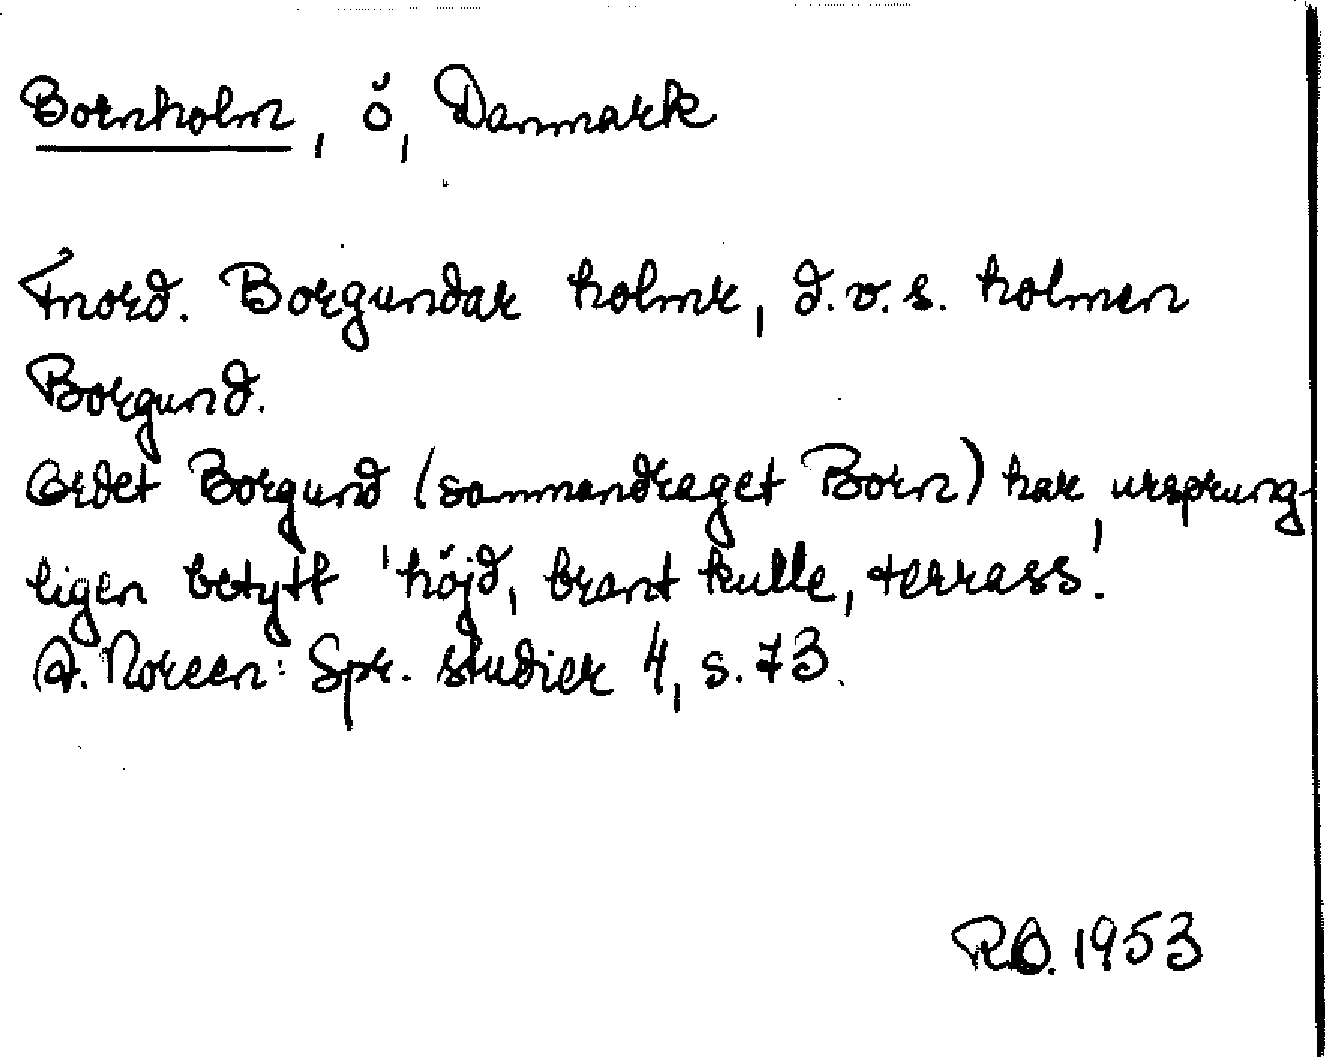 Bornholm, ö, Danmark
Fnord. Borgundar holmr, d.v.s. holmen
Borgund.
Ordet Borgund (sammandraget Born) har ursprung-
ligen betytt 'höjd, brant kulle, terrass'.
A. Noreen: Spr. studier 4, s. 73.
R.O. 1953